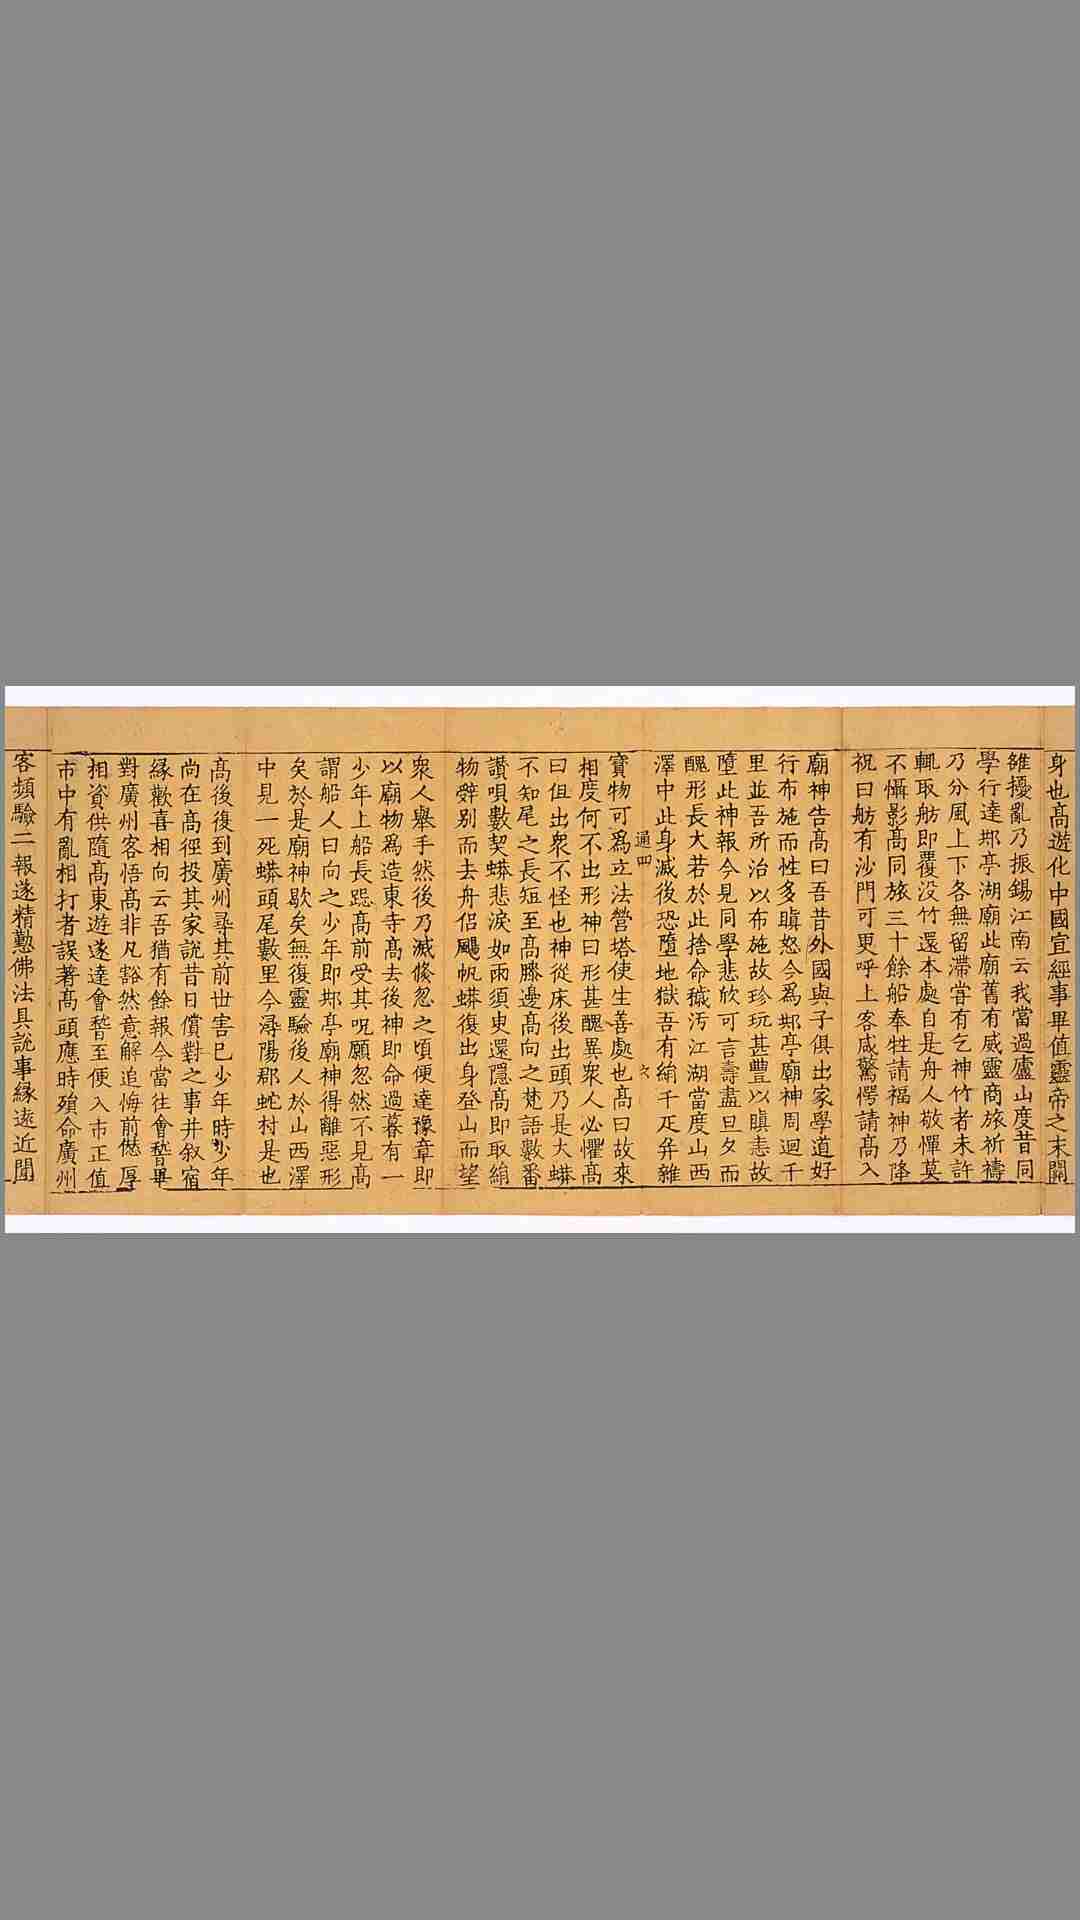 身也高遊化中國宣經事畢值靈帝之末關
雒擾亂乃振錫江南云我當過廬山度昔同
學行達䢼亭湖廟此廟舊有威靈商旅祈禱
乃分風上下各無留滯甞有乞神竹者未許
輒取舫即覆没竹還本處自是舟人敬憚莫
不懾影高同旅三十餘船奉牲請福神乃降
祝曰舫有沙門可更呼上客咸驚愕請高入
廟神告高曰吾昔外國與子俱出家學道好
行布施而性多瞋怒今爲䢼亭廟神周迴千
里並吾所治以布施故珍玩甚豐以瞋恚故
墮此神報今見同學悲欣可言壽盡旦夕而
醜形長大若於此捨命穢汚江湖當度山西
澤中此身滅後恐墮地獄吾有絹千疋并雜
通四 六
寶物可爲立法營塔使生善處也高曰故來
相度何不出形神曰形甚醜異衆人必懼高
曰但出衆不怪也神從床後出頭乃是大蟒
不知尾之長短至高膝邊高向之梵語數番
讚唄數契蟒悲淚如雨須臾還隱高即取絹
物辭別而去舟侣颺帆蟒復出身登山而望
衆人舉手然後乃滅倏忽之頃便達豫章即
以廟物爲造東寺高去後神即命過暮有一
少年上船長跽高前受其呪願忽然不見高
謂船人曰向之少年即䢼亭廟神得離惡形
矣於是廟神歇矣無復靈驗後人於山西澤
中見一死蟒頭尾數里今潯陽郡蛇村是也
高後復到廣州尋其前世害己少年時少年
尚在高徑投其家說昔日償對之事并叙宿
緣歡喜相向云吾猶有餘報今當往會稽畢
對廣州客悟高非凡豁然意解追悔前愆厚
相資供隨高東遊遂達會稽至便入市正值
市中有亂相打者誤著高頭應時殞命廣州
客頻驗二報遂精懃佛法具說事緣遠近聞